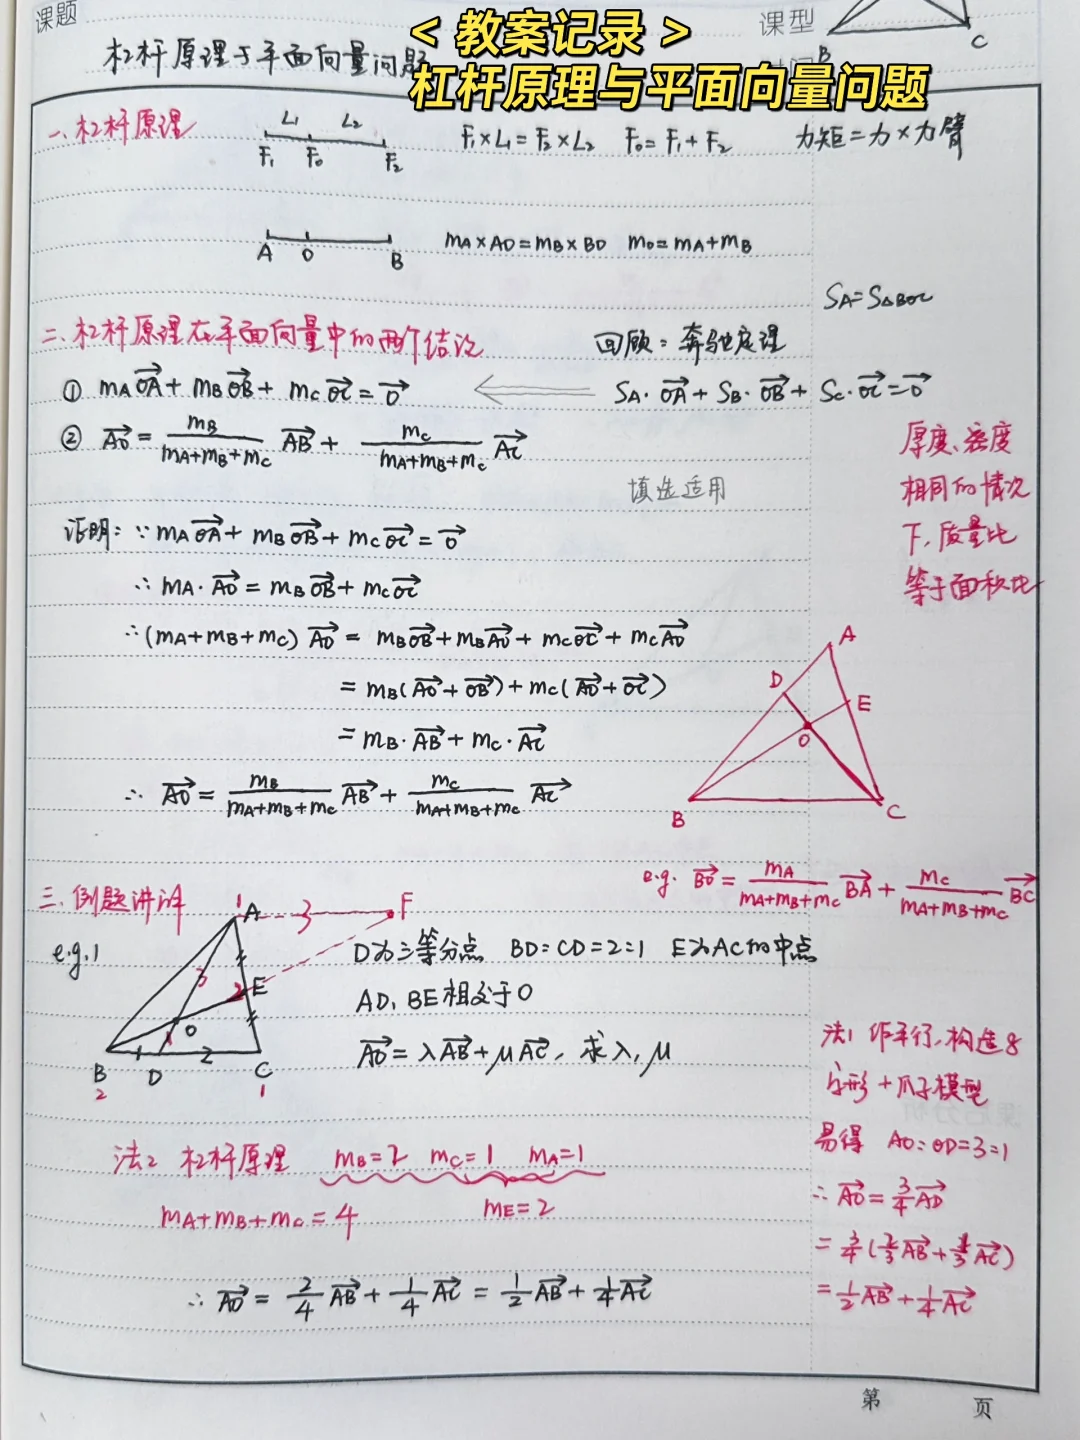 课题
课型
< 教案记录 >
杠杆原理与平面向量问题
杠杆原理与平面向量问题
B
C
一、杠杆原理
L₁ L₂
F₁ F₀ F₂
F₁×L₁=F₂×L₂ F₀=F₁+F₂ 力矩=力×力臂
A O B
mA×AO=mB×BO mo=mA+mB
SA=S△BOC
二、杠杆原理在平面向量中的两个结论
回顾：奔驰定理
① mA→OA+mB→OB+mC→OC=→0
SA·→OA+SB·→OB+SC·→OC=→0
② →AO=mB/(mA+mB+mC) →AB+mC/(mA+mB+mC) →AC
填选适用
厚度、密度
相同的情况
下,质量比
等于面积比
证明：∵mA→OA+mB→OB+mC→OC=→0
∴mA·→AO=mB→OB+mC→OC
∴(mA+mB+mC)→AO=mB→OB+mB→AO+mC→OC+mC→AO
=mB(→AO+→OB)+mC(→AO+→OC)
=mB·→AB+mC·→AC
∴ →AO=mB/(mA+mB+mC) →AB+mC/(mA+mB+mC) →AC
A
D
E
O
B
C
e.g. →BO=mA/(mA+mB+mC) →BA+mC/(mA+mB+mC) →BC
三、例题讲评
e.g.1
1 A 3 F
3
2 E
O
1
1 2
B D C
2 1
D为三等分点 BD:CD=2:1 E为AC的中点
AD,BE相交于O
→AO=λ→AB+μ→AC，求λ,μ
法1 作平行,构造8
字形+爪子模型
易得 AO:OD=3:1
∴→AO=3/4→AD
=3/4(2/3→AB+1/3→AC)
=1/2→AB+1/4→AC
法2 杠杆原理 mB=2 mC=1 mA=1
mE=2
mA+mB+mC=4
∴ →AO=2/4→AB+1/4→AC=1/2→AB+1/4→AC
第 页